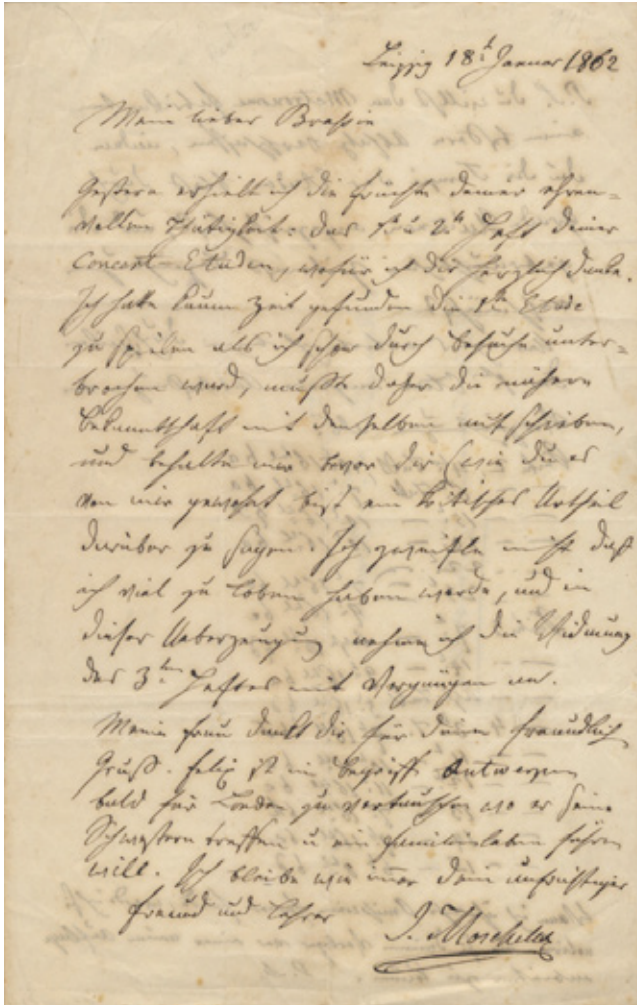 Leipzig 18t Januar 1862
Mein lieber Brassin
Gestern erhielt ich die Früchte deiner ehren-
vollen Thätigkeit: das 1te u 2te Heft deiner
Concert-Etuden, wofür ich dir herzlich danke.
Ich hatte kaum Zeit gefunden die 1te Etude
zu spielen als ich schon durch Besuche unter-
brochen ward, mußte daher die nähere
Bekanntschaft mit denselben aufschieben,
und behalte mir bevor dir (wie du es
von mir gewohnt bist) ein kritisches Urtheil
darüber zu sagen. Ich zweifle nicht daß
ich viel zu loben haben werde, und in
dieser Ueberzeugung nehme ich die Widmung
des 3ten Heftes mit Vergnügen an.
Meine Frau dankt dir für deinen freundlich
Gruß. Felix ist im Begriff Antwerpen
bald für London zu vertauschen wo er seine
Schwestern treffen u ein Familienleben führen
will. Ich bleibe wie immer dein aufrichtiger
Freund und Lehrer
J. Moscheles